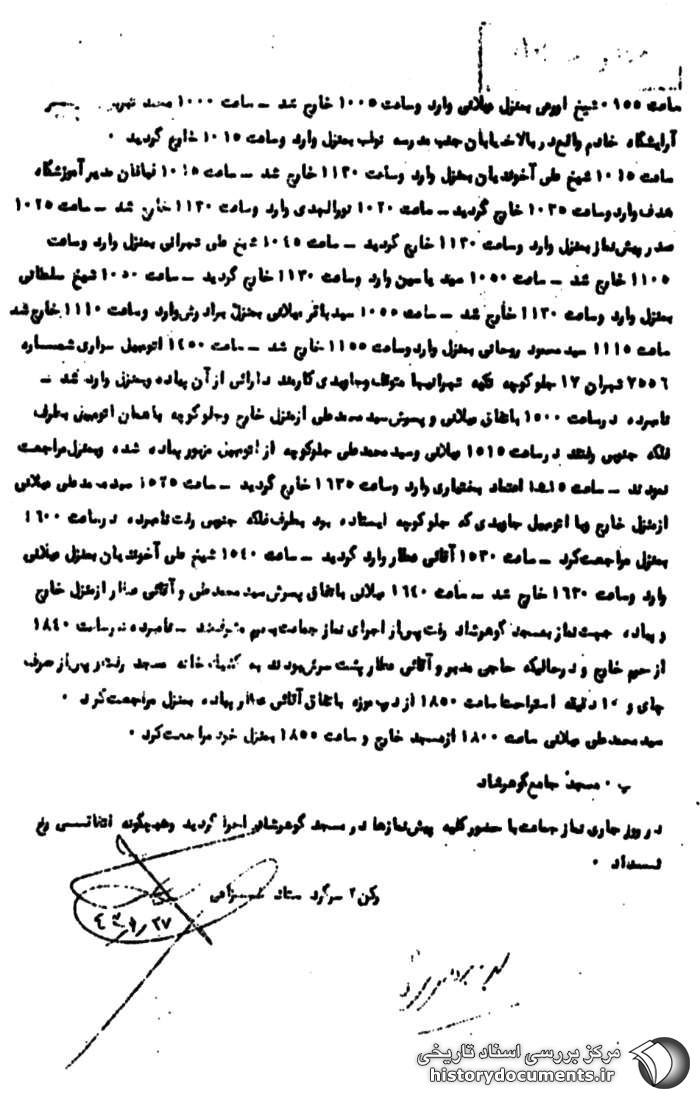 ساعت ۱۵۵ شیخ بمنزل میلانی وارد و ساعت ۱۰۰۵ خارج شد – ساعت ۱۰۰۰ محمد
آرایشگاه خادم واقع در بالا خیابان جنب مدرسه نواب بمنزل وارد و ساعت ۱۰۱۵ خارج گردید ۰
ساعت ۱۰۱۵ شیخ علی آخوندیان بمنزل وارد و ساعت ۱۱۳۰ خارج شد – ساعت ۱۰۱۵ مدیر آموزشگاه
هدف وارد و ساعت ۱۰۳۵ خارج گردید – ساعت ۱۰۲۰ نورالهدی وارد و ساعت ۱۱۲۰ خارج شد – ساعت ۱۰۲۵
صدر پیش‌نماز بمنزل وارد و ساعت ۱۱۳۰ خارج گردید – ساعت ۱۰۴۵ شیخ علی تهرانی بمنزل وارد و ساعت
۱۱۰۵ خارج شد – ساعت ۱۰۵۰ سید یاسین وارد و ساعت ۱۱۳۰ خارج گردید – ساعت شیخ سلطانی
بمنزل وارد و ساعت ۱۱۲۰ خارج شد – ساعت ۱۰۵۵ سید باقر میلانی بمنزل برادرش وارد و ساعت ۱۱۱۰ خارج شد
ساعت ۱۱۱۵ سید محمود روحانی بمنزل وارد و ساعت ۱۱۵۵ خارج شد – ساعت ۱۴۵۰ اتومبیل سواری شماره
۲۵۵۶ تهران ۱۷ جلو کوچه تکیه تهرانیها متوقف و جاویدی کارمند دارائی از آن پیاده و بمنزل وارد شد –
نامبرده در ساعت ۱۵۰۰ باتفاق میلانی و پسرش سید محمد علی از منزل خارج و جلو کوچه با همان اتومبیل بطرف
فلکه جنوبی رفتند در ساعت ۱۵۱۵ میلانی و سید محمد علی جلو کوچه از اتومبیل مزبور پیاده شده و بمنزل مراجعت
نمودند – ساعت ۱۵۱۵ اعتماد بختیاری وارد و ساعت ۱۶۳۵ خارج گردید – ساعت ۱۵۲۵ سید محمد علی میلانی
از منزل خارج و با اتومبیل جاویدی که جلو کوچه ایستاده بود بطرف فلکه جنوبی رفت نامبرده در ساعت ۱۶۰۰
بمنزل مراجعت کرد – ساعت ۱۵۳۰ آقائی عطار وارد گردید – ساعت ۱۵۴۰ شیخ علی آخوندیان بمنزل میلانی
وارد و ساعت ۱۶۳۰ خارج شد – ساعت ۱۶۴۰ میلانی باتفاق پسرش سید محمد علی و آقائی عطار از منزل خارج
و پیاده جهت نماز بمسجد گوهرشاد رفت پس از اجرای نماز جماعت بحرم مشرف شد – نامبرده در ساعت ۱۸۴۰
از حرم خارج و در حالیکه حاجی مدبر و آقائی عطار پشت سرش بودند به کشیک خانه مسجد رفتند و پس از صرف
چای و ۱۰ دقیقه استراحت ساعت ۱۸۵۰ از درب موزه باتفاق آقائی عطار پیاده بمنزل مراجعت کرد ۰
سید محمد علی میلانی ساعت ۱۸۰۰ از مسجد خارج و ساعت ۱۸۵۵ بمنزل خود مراجعت کرد ۰
ب ۰ مسجد جامع گوهرشاد
در روز جاری نماز جماعت با حضور کلیه پیش‌نمازها در مسجد گوهرشاد اجرا گردید و هیچگونه اتفاقی رخ
نداد ۰
رکن ۲ سرگرد ستاد
مرکز بررسی اسناد تاریخی
historydocuments.ir